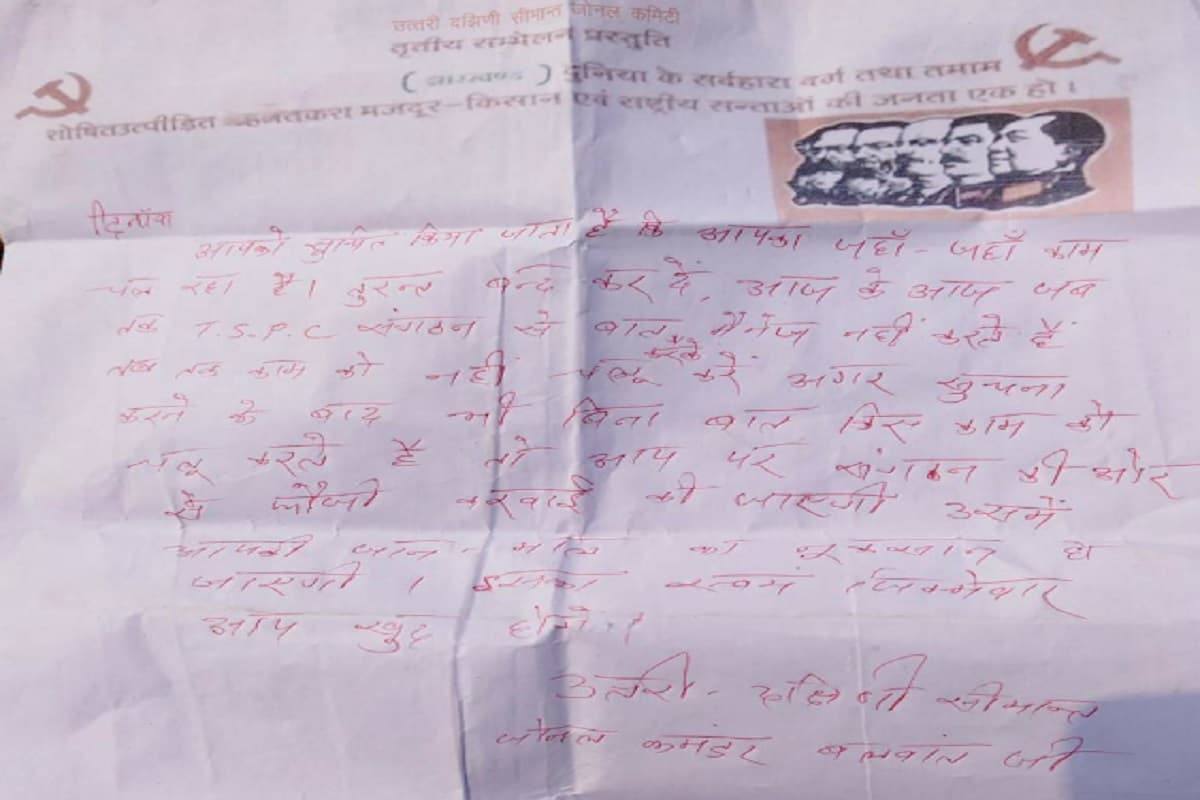 उत्तरी दक्षिणी सीमान्त जोनल कमिटी
तृतीय सम्मेलन प्रस्तुति
( झारखण्ड ) दुनिया के सर्वहारा वर्ग तथा तमाम
शोषितउत्पीड़ित मजदूर–किसान एवं राष्ट्रीय सन्ताओं की जनता एक हो ।
दिनाँक
आपको सुचित किया जाता है कि आपका जहाँ - जहाँ काम
चल रहा है। तुरन्त बन्द कर दें, आज के आज जब
तक T.S.P.C संगठन से बात मैनेज नहीं करते हैं
तब तक काम को नहीं चालू करें अगर सुचना
करके
करने के बाद भी बिना बात किए काम को
चालू करते है तो आप पर संगठन की ओर
से फौजी करवाई की जाएगी उसमें
आपकी जान - माल का नुकसान हो
जाएगी । इसका स्वयं जिम्मेवार
आप खुद होगे ।
उतरी - दक्षिणी सीमान्त
जोनल कमांडर बलवंत जी